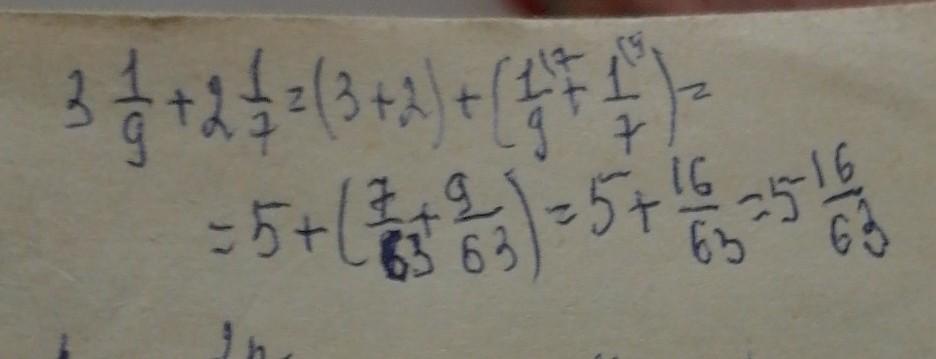 3 1/9 + 2 1/7 = (3+2) + (1/9 (7 + 1/7 (9) =
= 5 + (7/63 + 9/63) = 5 + 16/63 = 5 16/63